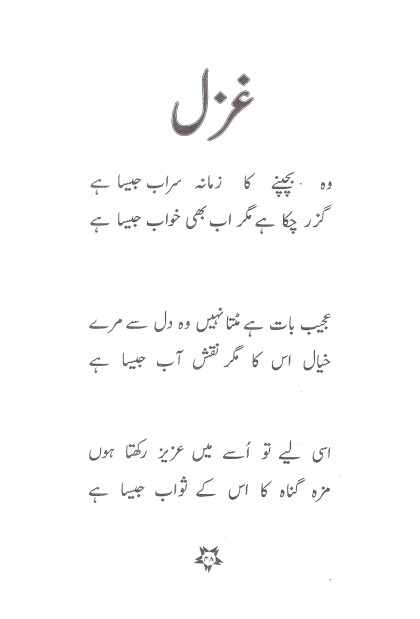 غزل
وہ بچپنے کا زمانہ سراب جیسا ہے
گزر چکا ہے مگر اب بھی خواب جیسا ہے
عجیب بات ہے مٹتا نہیں وہ دل سے مرے
خیال اس کا مگر نقش آب جیسا ہے
اسی لیے تو اُسے میں عزیز رکھتا ہوں
مزہ گناہ کا اس کے ثواب جیسا ہے
۳۸